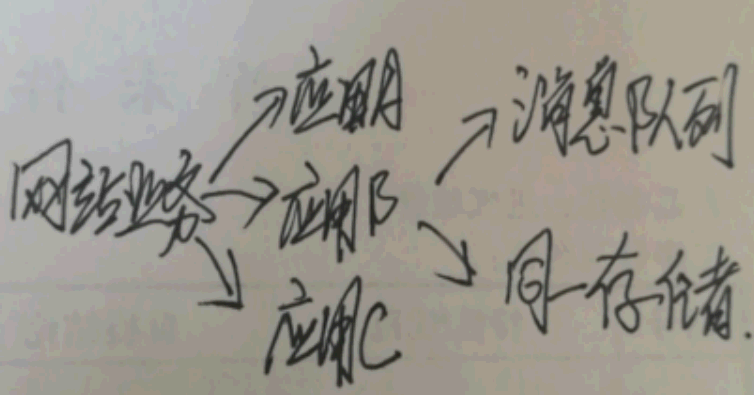 网站业务
应用A
应用B
应用C
消息队列
同一存储.